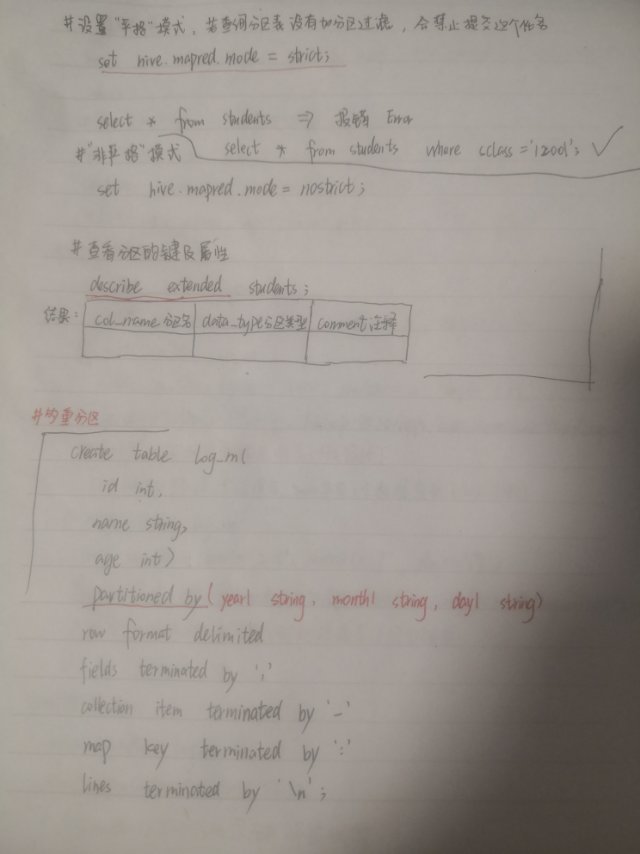 #设置"严格"模式，若查询分区表没有加分区过滤，会禁止提交这个任务
set hive.mapred.mode = strict;
select * from students => 报错 Error
#"非严格"模式 select * from students where cclass='12001'; ✓
set hive.mapred.mode = nostrict;
#查看分区的键及属性
describe extended students;
结果:
col_name 分区名 data_type 分区类型 comment 注释
#多重分区
create table log_m(
id int,
name string,
age int)
partitioned by( year1 string, month1 string, day1 string)
row format delimited
fields terminated by ','
collection item terminated by '-'
map key terminated by ':'
lines terminated by '\n';